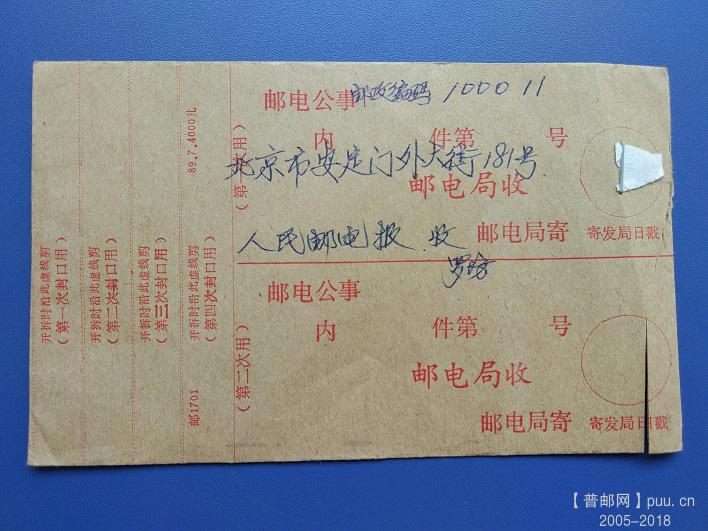 邮电公事
邮政编码 100011
内 件第 号
北京市安定门外大街181号
邮电局收
人民邮电报 收
邮电局寄 寄发局日戳
邮电公事
内 件第 号
邮电局收
邮电局寄 寄发局日戳
(第一次用)
(第二次用)
89.7.4000扎
邮1701
开拆时沿此虚线剪
(第一次封口用)
开拆时沿此虚线剪
(第二次封口用)
开拆时沿此虚线剪
(第三次封口用)
开拆时沿此虚线剪
(第四次封口用)
【普邮网】puu.cn
2005-2018